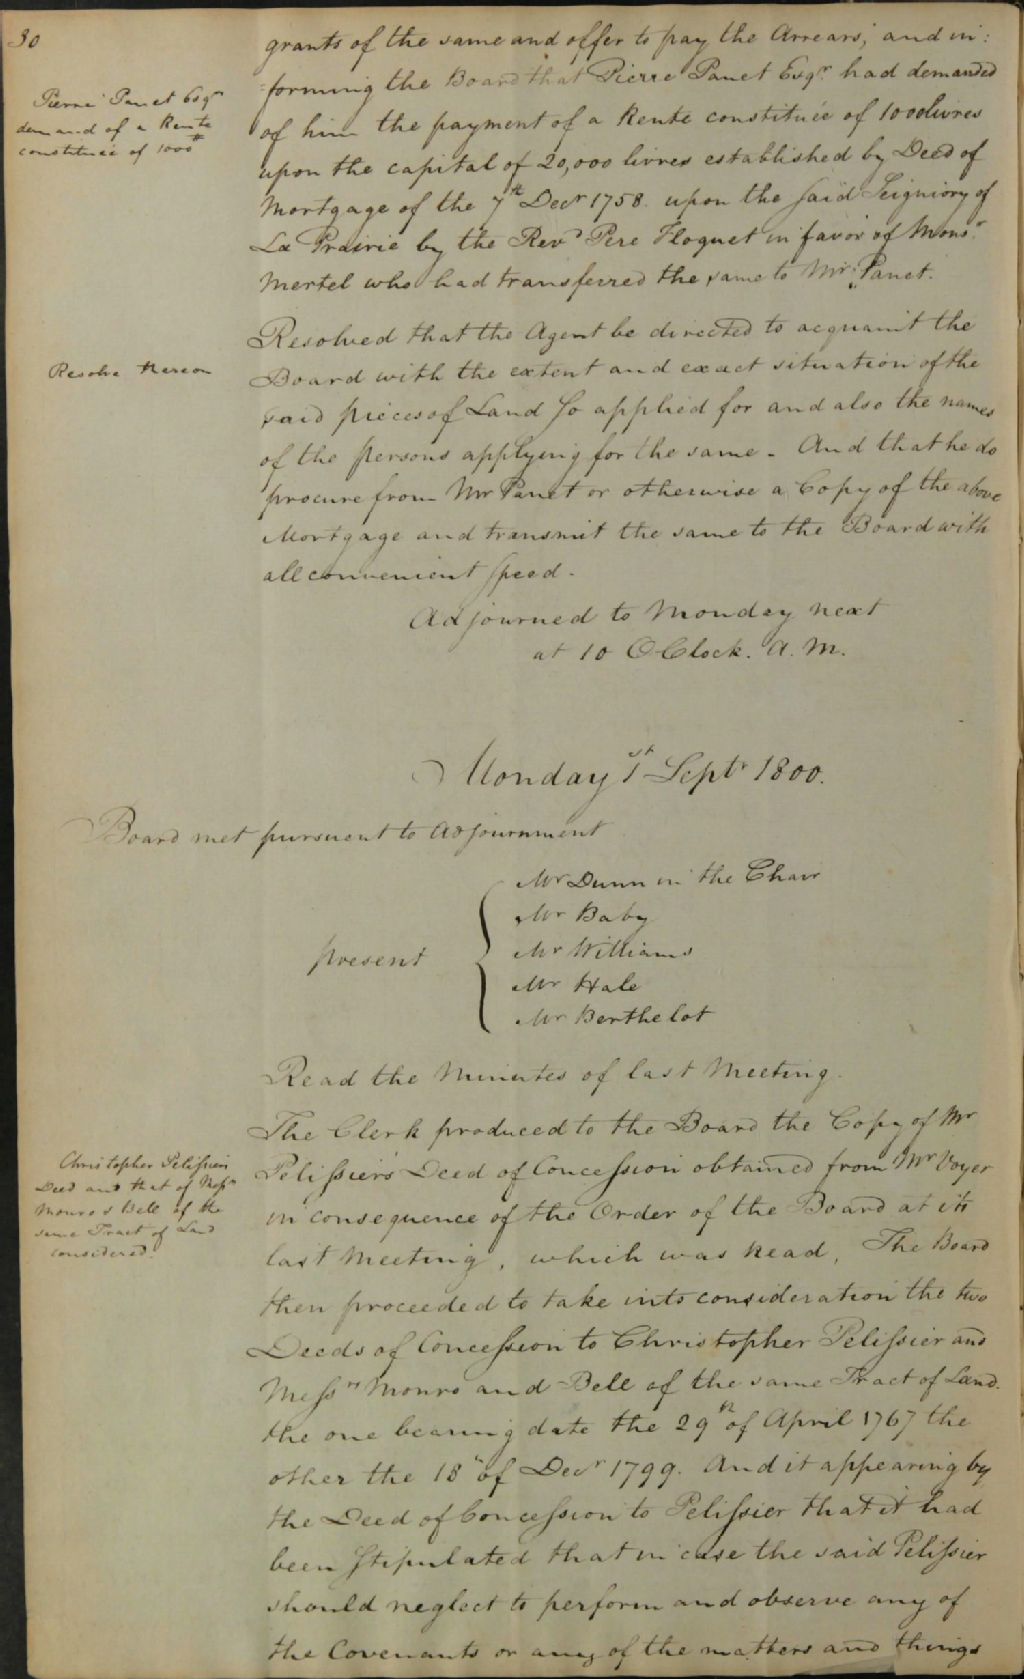 30
grants of the same and offer to pay the Arrears; and in:
:forming the Board that Pierre Panet Esqr. had demanded
Pierre Panet Esqr
demand of a Rente
constituée of 1000#
of him the payment of a Rente constituée of 1000 livres
upon the capital of 20,000 livres established by Deed of
Mortgage of the 7th Decr 1758. upon the said Seigniory of
La Prairie by the Revd Pere Floquet in favor of Monsr.
Mertel who had transferred the same to Mr. Panet.
Resolve thereon
Resolved that the Agent be directed to acquaint the
Board with the extent and exact situation of the
said pieces of Land so applied for and also the names
of the persons applying for the same - And that he do
procure from Mr Panet or otherwise a Copy of the above
Mortgage and transmit the same to the Board with
all convenient speed -
Adjourned to Monday next
at 10 O'Clock. A. M.
Monday 1st Septr 1800.
Board met pursuent to Adjournment
present
Mr Dunn in the Chair
Mr Baby
Mr Williams
Mr Hale
Mr Berthelot
Read the Minutes of last Meeting.
The Clerk produced to the Board the Copy of Mr
Christopher Pelissier
Deed and that of Messrs
Monro & Bell of the
same Tract of Land
considered.
Pelissier's Deed of Concession obtained from Mr Voyer
in consequence of the Order of the Board at its
last Meeting, which was Read, The Board
then proceeded to take into consideration the two
Deeds of Concession to Christopher Pelissier and
Messrs Monro and Bell of the same Tract of Land.
the one bearing date the 29th of April 1767 the
other the 18th of Decr 1799. And it appearing by
the Deed of Concession to Pelissier that it had
been stipulated that in case the said Pelissier
should neglect to perform and observe any of
the Covenants or any of the matters and things